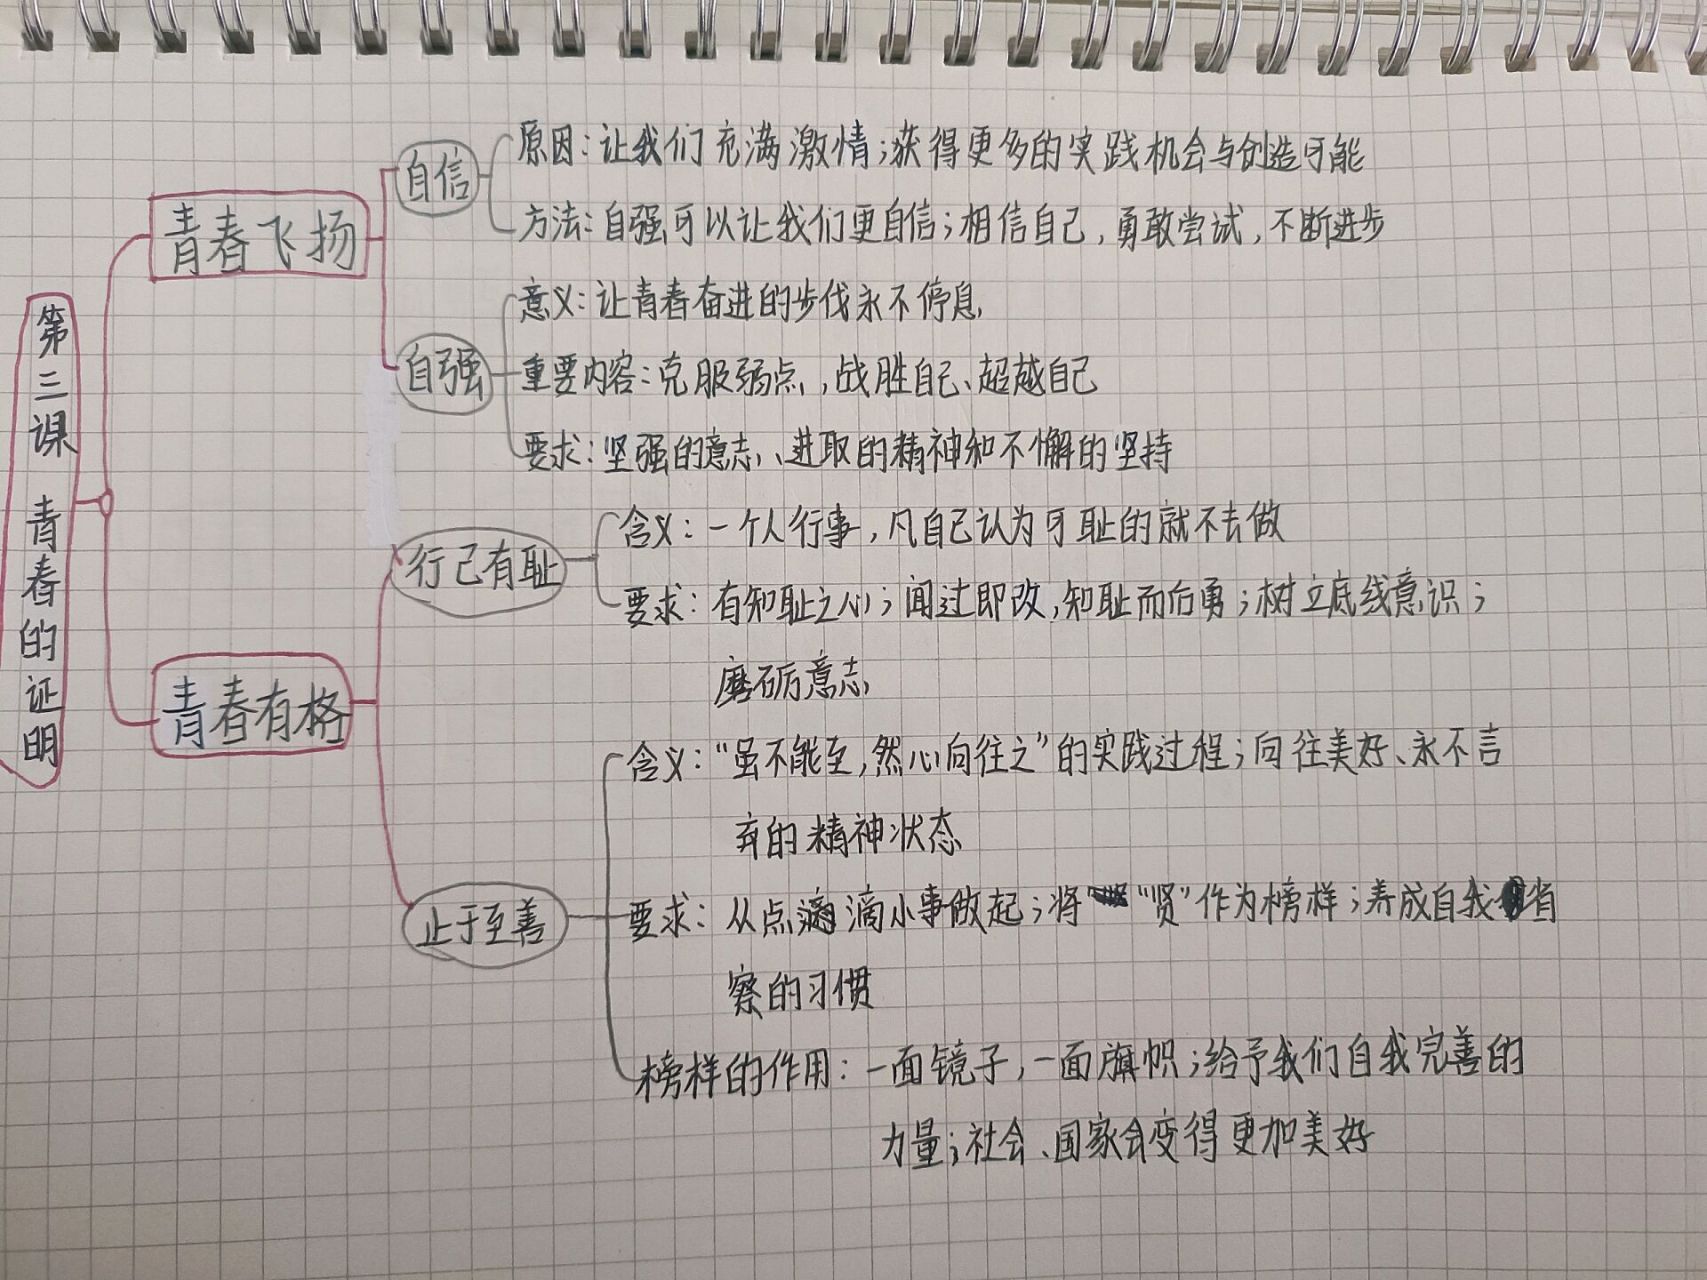 第三课 青春的证明
青春飞扬
自信
原因：让我们充满激情；获得更多的实践机会与创造可能
方法：自强可以让我们更自信；相信自己，勇敢尝试，不断进步
自强
意义：让青春奋进的步伐永不停息
重要内容：克服弱点，战胜自己、超越自己
要求：坚强的意志、进取的精神和不懈的坚持
青春有格
行己有耻
含义：一个人行事，凡自己认为可耻的就不去做
要求：有知耻之心；闻过即改，知耻而后勇；树立底线意识；
磨砺意志
止于至善
含义：“虽不能至，然心向往之”的实践过程；向往美好、永不言
弃的精神状态
要求：从点滴小事做起；将“贤”作为榜样；养成自我省
察的习惯
榜样的作用：一面镜子，一面旗帜；给予我们自我完善的
力量；社会、国家会变得更加美好